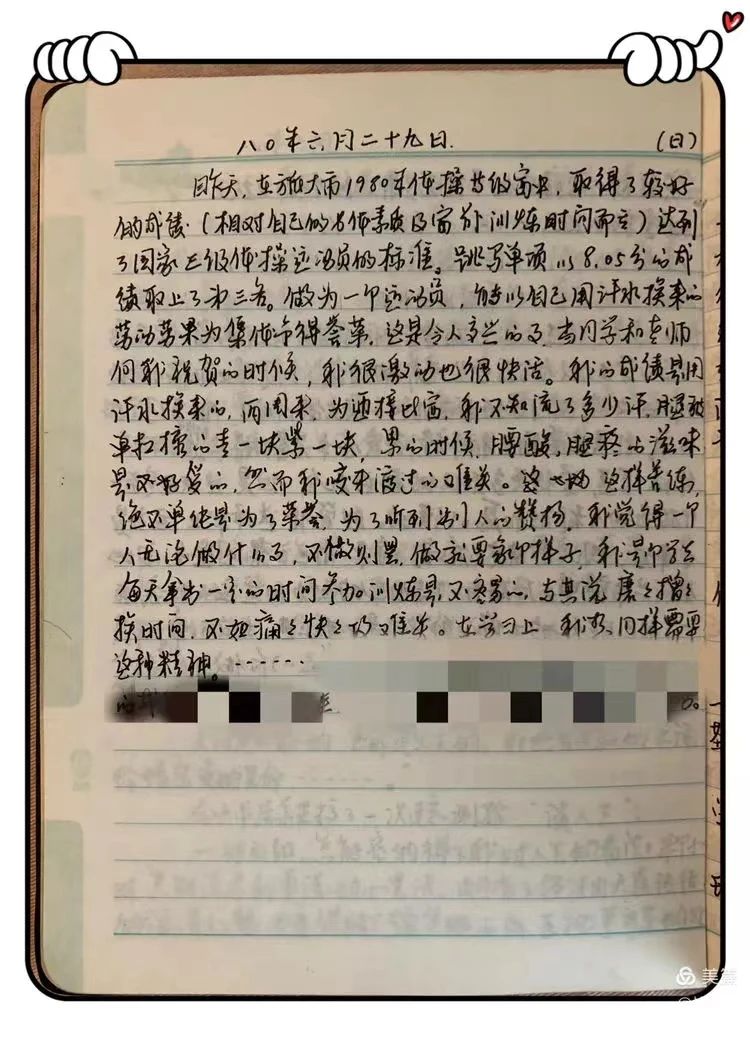 八〇年六月二十九日. (日)
昨天,在旅大市1980年体操等级赛中,取得了较好
的成绩(相对自己的身体素质及赛前训练时间而言)达到
了国家三级体操运动员的标准。跳马单项以8.05分的成
绩取上了第三名。做为一个运动员,能以自己用汗水换来的
劳动苦果为集体争得荣誉,这是令人高兴的事,当同学和老师
向我祝贺的时候,我很激动也很快活。我的成绩是用
汗水换来的,两周来,为迎接比赛,我不知流了多少汗,腿被
单杠撞的青一块紫一块,累的时候,腰酸,腿疼的滋味
是不好受的,然而我咬牙渡过的难关。这样苦练,
绝不单纯是为了荣誉,为了听到别人的赞扬,我觉得一个
人无论做什么事,不做则罢,做就要象个样子,我是个学生
每天拿出一定的时间参加训练是不容易的,与其说磨磨蹭蹭
挨时间,不如痛痛快快的。在学习上同样需要
这种精神。……
美篇